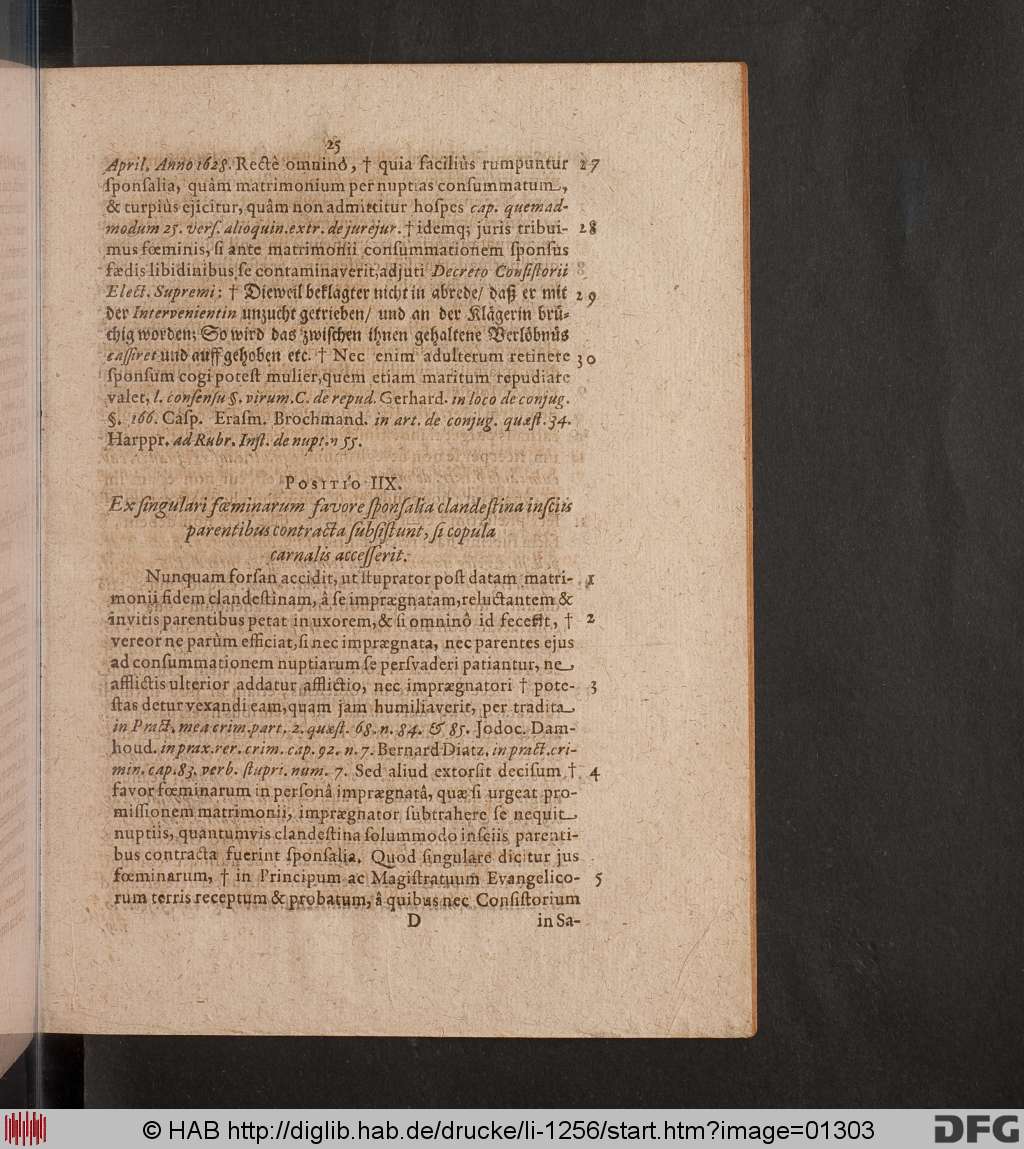 25
April. Anno 1628. Rectè omninò, † quia faciliùs rumpuntur 27
ſponſalia, quâm matrimonium per nuptias conſummatum,
& turpiùs ejicitur, quâm non admittitur hoſpes cap. quemad-
modum 25. verſ. alioquin. extr. de jurejur. † idemq; juris tribui- 28
mus fœminis, ſi ante matrimonii conſummationem ſponſus
fædis libidinibus ſe contaminaverit, adjuti Decreto Conſiſtorii
Elect. Supremi: † Dieweil beklagter nicht in abrede/ daß er mit 29
der Intervenientin unzucht getrieben/ und an der Klägerin brü-
chig worden; So wird das zwiſchen ihnen gehaltene Verlöbnüs
caſſiret und auff gehoben etc. † Nec enim adulterum retinere 30
ſponſum cogi poteſt mulier, quem etiam maritum repudiare
valet, l. conſenſu §. virum. C. de repud. Gerhard. in loco de conjug.
§. 166. Caſp. Eraſm. Brochmand. in art. de conjug. quæſt. 34.
Harppr. ad Rubr. Inſt. de nupt. n 55.
POSITIO IIX.
Ex ſingulari fœminarum favore ſponſalia clandeſtina inſciis
parentibus contracta ſubſiſtunt, ſi copula
carnalis acceſſerit.
Nunquam forſan accidit, ut ſtuprator poſt datam matri- 1
monii fidem clandeſtinam, â ſe imprægnatam, reluctantem &
invitis parentibus petat in uxorem, & ſi omninò id feceſit, † 2
vereor ne parùm efficiat, ſi nec imprægnata, nec parentes ejus
ad conſummationem nuptiarum ſe perſvaderi patiantur, ne
afflictis ulterior addatur afflictio, nec imprægnatori † pote- 3
ſtas detur vexandi eam, quam jam humiliaverit, per tradita
in Pract. mea crim. part. 2. quæſt. 68. n. 84. & 85. Jodoc. Dam-
houd. in prax. rer. crim. cap. 92. n. 7. Bernard Diatz. in pract. cri-
min. cap. 83. verb. ſtupri. num. 7. Sed aliud extorſit deciſum † 4
favor fœminarum in perſonâ imprægnatâ, quæ ſi urgeat pro-
miſſionem matrimonii, imprægnator ſubtrahere ſe nequit
nuptiis, quantumvis clandeſtina ſolummodo inſciis parenti-
bus contracta fuerint ſponſalia. Quod ſingulare dicitur jus
fœminarum, † in Principum ac Magiſtratuum Evangelico- 5
rum terris receptum & probatum, â quibus nec Conſiſtorium
D in Sa-
© HAB http://diglib.hab.de/drucke/li-1256/start.htm?image=01303
DFG